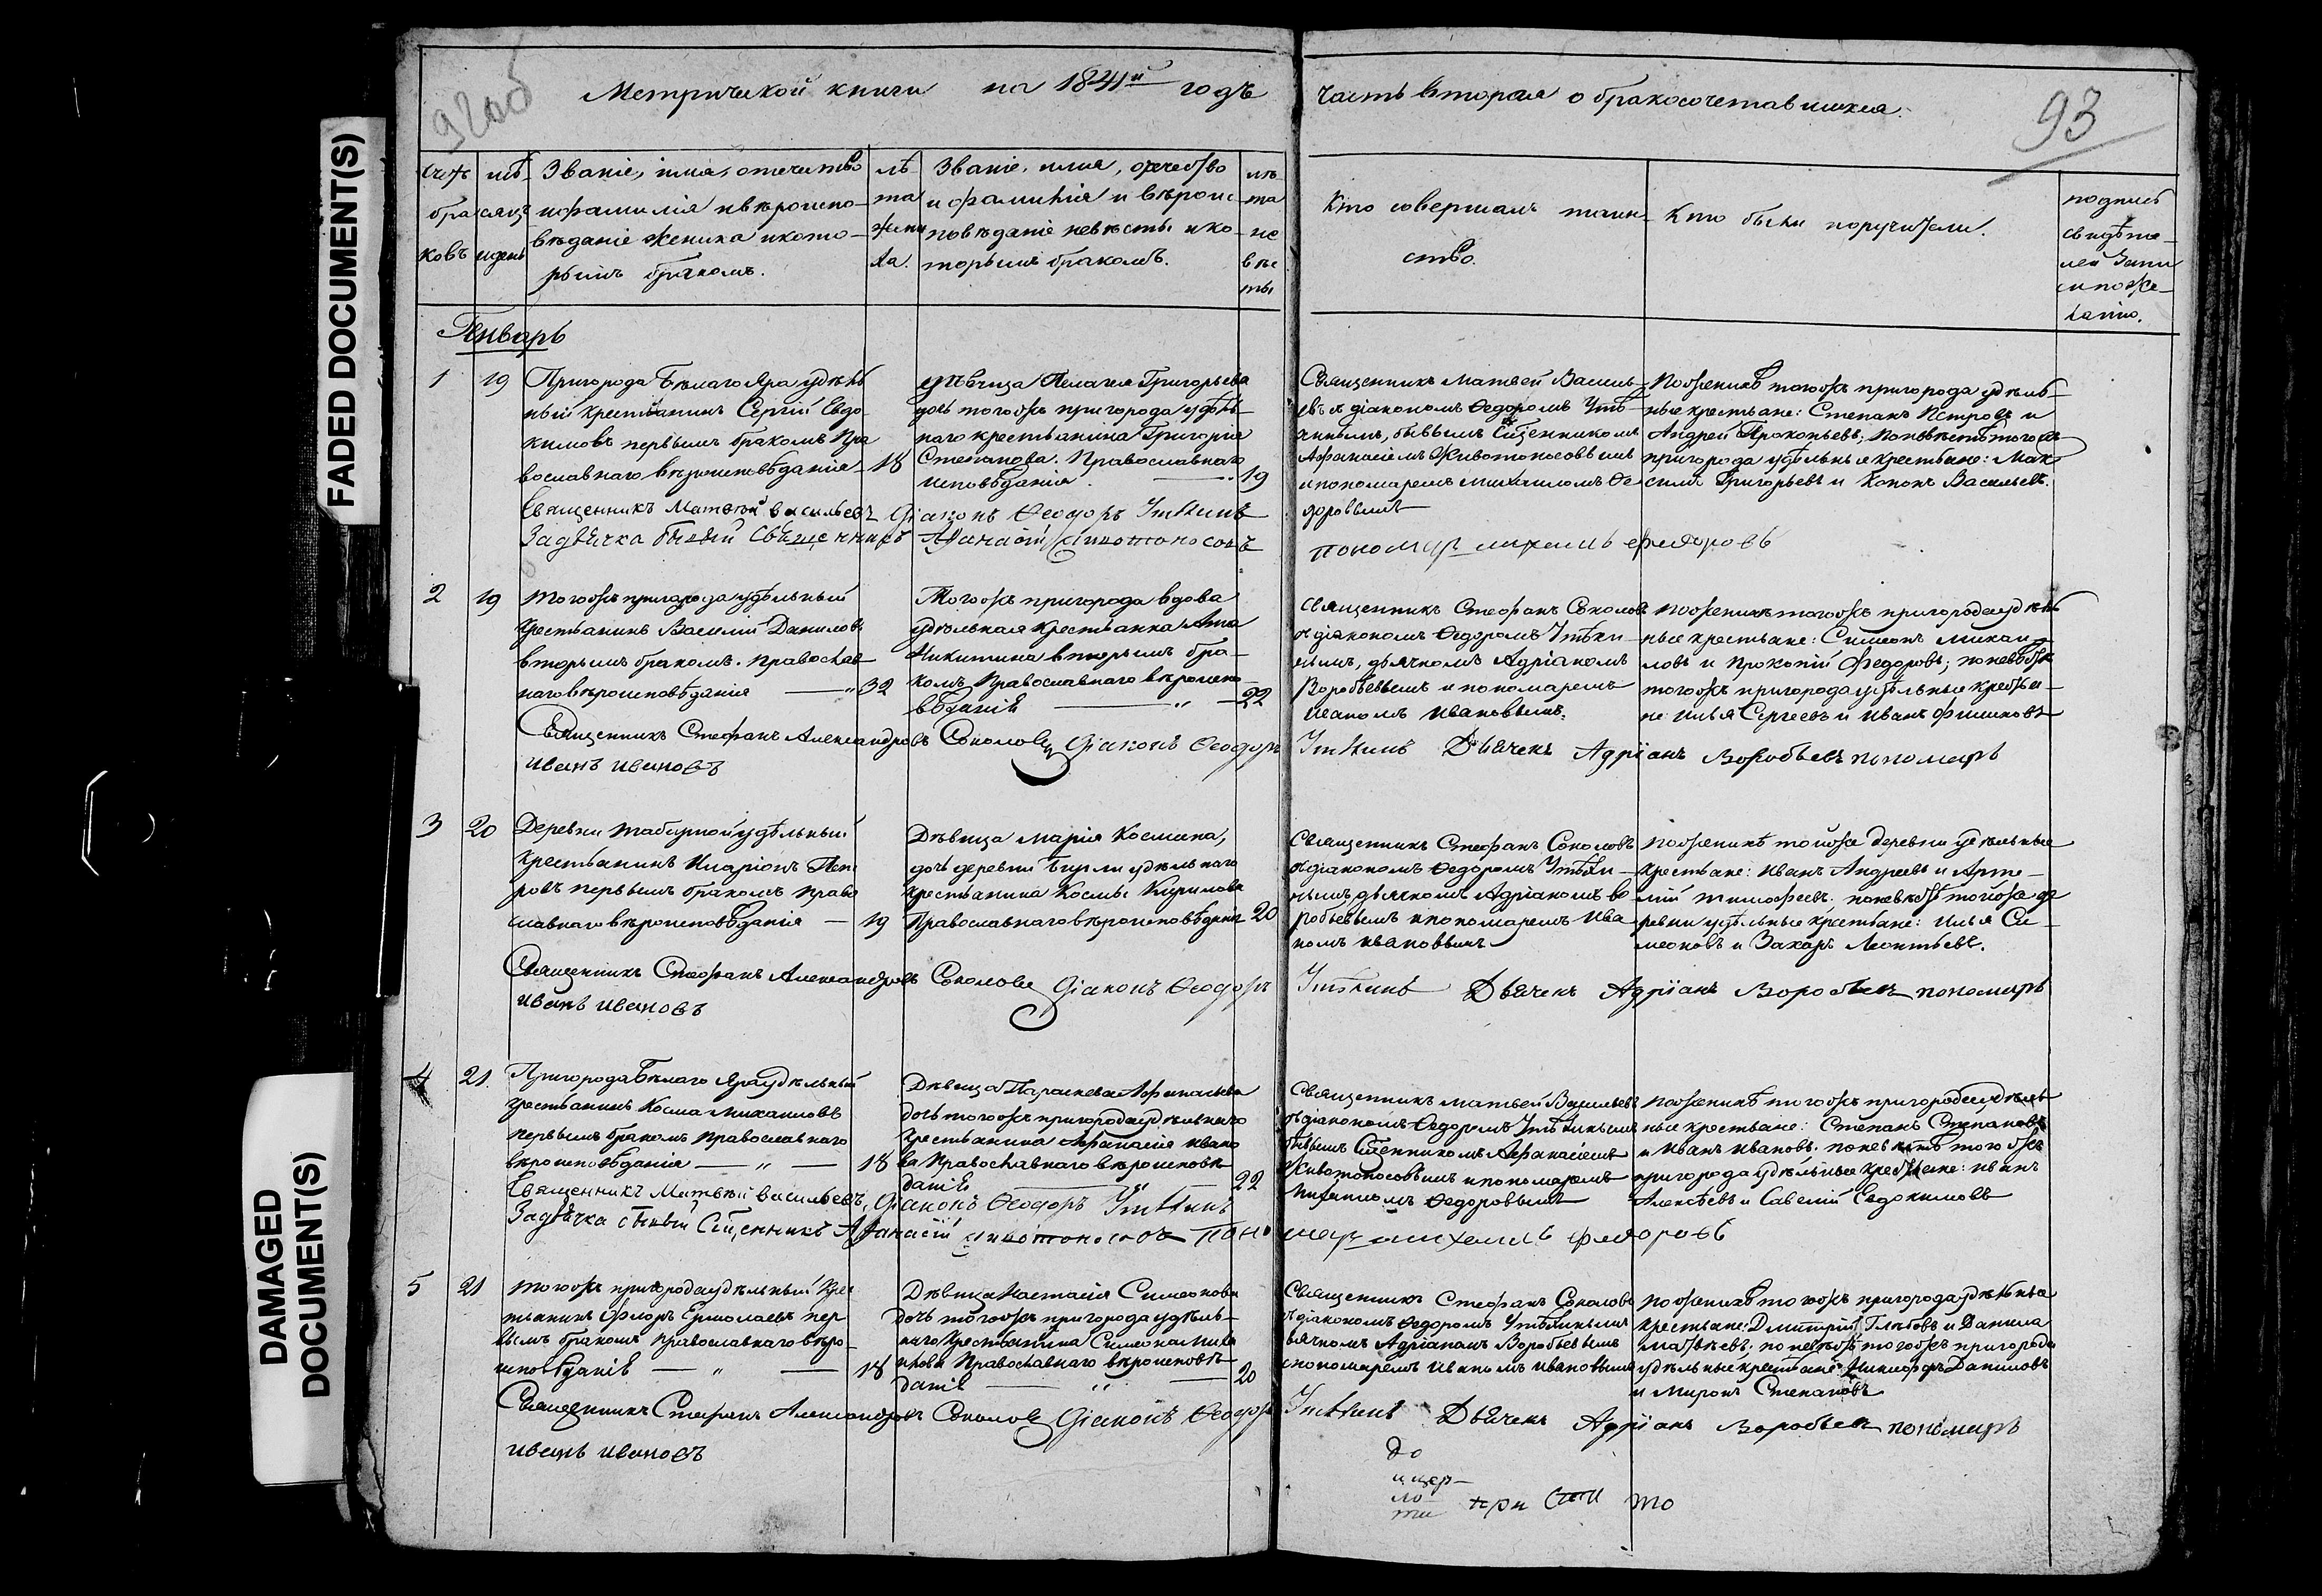 FADED DOCUMENT(S)
DAMAGED
DOCUMENT(S)
92об
93
Метрической книги на 1841й годъ
часть вторая о бракосочетавшихся.
Счетъ браковъ
мѣсяцъ и день
Званіе, имя, отечество
и фамилія и вѣроиспо-
вѣданіе жениха и кото-
рымъ бракомъ.
лѣ-
та
жени
ха.
Званіе, имя, отечество
и фамилія и вѣроис
повѣданіе невѣсты и ко-
торымъ бракомъ.
лѣ-
та
не
вѣс
ты
Кто совершалъ таин-
ство.
Кто были поручители.
подпись
свидѣте-
лей запи
си по же-
ланію.
Январь
1
19
Пригорода Бѣлаго Яра удѣль
ный крестьянинъ Сергій Евдо-
кимовъ первымъ бракомъ Пра
вославнаго вѣроисповѣданія
18
дѣвица Пелагея Григорьева
дочь того жъ пригорода удѣль-
наго крестьянина Григорія
Степанова. Православнаго
исповѣданія.
19
Священникъ Матвей Василь-
евъ съ діакономъ Ѳедоромъ Утѣ-
кинымъ, бывшимъ Сщенникомъ
Аѳанасіемъ Животоносовымъ
и пономаремъ Михаиломъ Ѳе-
доровымъ
По женихѣ того жъ пригорода удѣль-
ные крестьяне: Степанъ Петровъ и
Андрей Прокопьевъ, по невѣстѣ того жъ
пригорода удѣльные крестьяне: Мак
симъ Григорьевъ и Кононъ Васильевъ.
Священникъ Матвѣй Васильевъ Діаконъ Ѳеодоръ Утѣкинъ
За дьячка бывый Священникъ Афанасій Животоносовъ
пономарь михаилъ федоровъ
2
19
Того жъ пригорода удѣльный
крестьянинъ Василій Даниловъ
вторымъ бракомъ. Православ
наго вѣроисповѣданія
32
Того жъ пригорода вдова
удѣльная крестьянка Анна
Никитина вторымъ бра-
комъ, Православнаго вѣроиспо-
вѣданія
22
Священникъ Стефанъ Соколовъ
съ діакономъ Ѳедоромъ Утѣки-
нымъ, дьячкомъ Адріаномъ
Воробьевымъ и пономаремъ
Иваномъ Ивановымъ.
По женихѣ того жъ пригорода удѣль
ные крестьяне: Симеонъ Михаи-
ловъ и Прокопій Федоровъ; по невѣстѣ
того жъ пригорода удѣльные крестья-
не Илья Сергеевъ и Иванъ Филиповъ
Священникъ Стефанъ Александровъ Соколовъ Діаконъ Ѳеодоръ Утѣкинъ Дьячекъ Адріанъ Воробьевъ пономарь
иванъ ивановъ
3
20
Деревни удѣльный
крестьянинъ Иларіонъ Пет
ровъ первымъ бракомъ Право
славнаго вѣроисповѣданія
19
Дѣвица Марія Космина,
дочь деревни удѣльнаго
крестьянина Космы Кирилова
Православнаго вѣроисповѣданія
20
Священникъ Стефанъ Соколовъ
съ діакономъ Ѳедоромъ Утѣки-
нымъ, дьячкомъ Адріаномъ Во
робьевымъ и пономаремъ Ива
номъ Ивановымъ
По женихѣ той же деревни удѣльные
крестьяне: Иванъ Андреевъ и Арте-
мій Тимофеевъ. по невѣстѣ той же де
ревни удѣльные крестьяне: Илья Си-
меоновъ и Захаръ Леонтьевъ.
Священникъ Стефанъ Александровъ Соколовъ Діаконъ Ѳеодоръ Утѣкинъ Дьячекъ Адріанъ Воробьевъ пономарь
иванъ ивановъ
4
21.
Пригорода Бѣлаго Яра удѣльный
крестьянинъ Косма Михаиловъ
первымъ бракомъ Православнаго
вѣроисповѣданія
18
Дѣвица Параскева Афанасьева
дочь того жъ пригорода удѣльнаго
крестьянина Афанасія Ивано
ва Православнаго вѣроисповѣ
данія
22
Священникъ Матвѣй Васильевъ
съ діакономъ Ѳедоромъ Утѣкинымъ
бывшимъ Сщенникомъ Аѳанасіемъ
Животоносовымъ и пономаремъ
Михаиломъ Ѳедоровымъ
По женихѣ того жъ пригорода удѣль
ные крестьяне: Степанъ Степановъ
и Иванъ Ивановъ. по невѣстѣ того жъ
пригорода удѣльные крестьяне: Иванъ
Алексѣевъ и Савелій Евдокимовъ
Священникъ Матвѣй Васильевъ, Діаконъ Ѳеодоръ Утѣкинъ
За дьячка бывый Сщенникъ Афанасій Животоносовъ Пономарь михаилъ федоровъ
5
21
Того жъ пригорода удѣльный крес
тьянинъ Флоръ Ермолаевъ пер
вымъ бракомъ Православнаго вѣро-
исповѣданія
18
Дѣвица Настасія Симеонова
дочь того жъ пригорода удѣль-
наго крестьянина Симеона
Православнаго вѣроисповѣ-
данія
20
Священникъ Стефанъ Соколовъ
съ діакономъ Ѳедоромъ Утѣкинымъ
дьячкомъ Адріаномъ Воробьевымъ
и пономаремъ Иваномъ Ивановымъ
По женихѣ того жъ пригорода удѣльные
крестьяне: Дмитрій Глѣбовъ и Данила
Матвѣевъ. по невѣстѣ того жъ пригорода
удѣльные крестьяне: Никифоръ Даниловъ
и Миронъ Степановъ
Священникъ Стефанъ Александровъ Соколовъ Діаконъ Ѳеодоръ Утѣкинъ Дьячекъ Адріанъ Воробьевъ пономарь
иванъ ивановъ